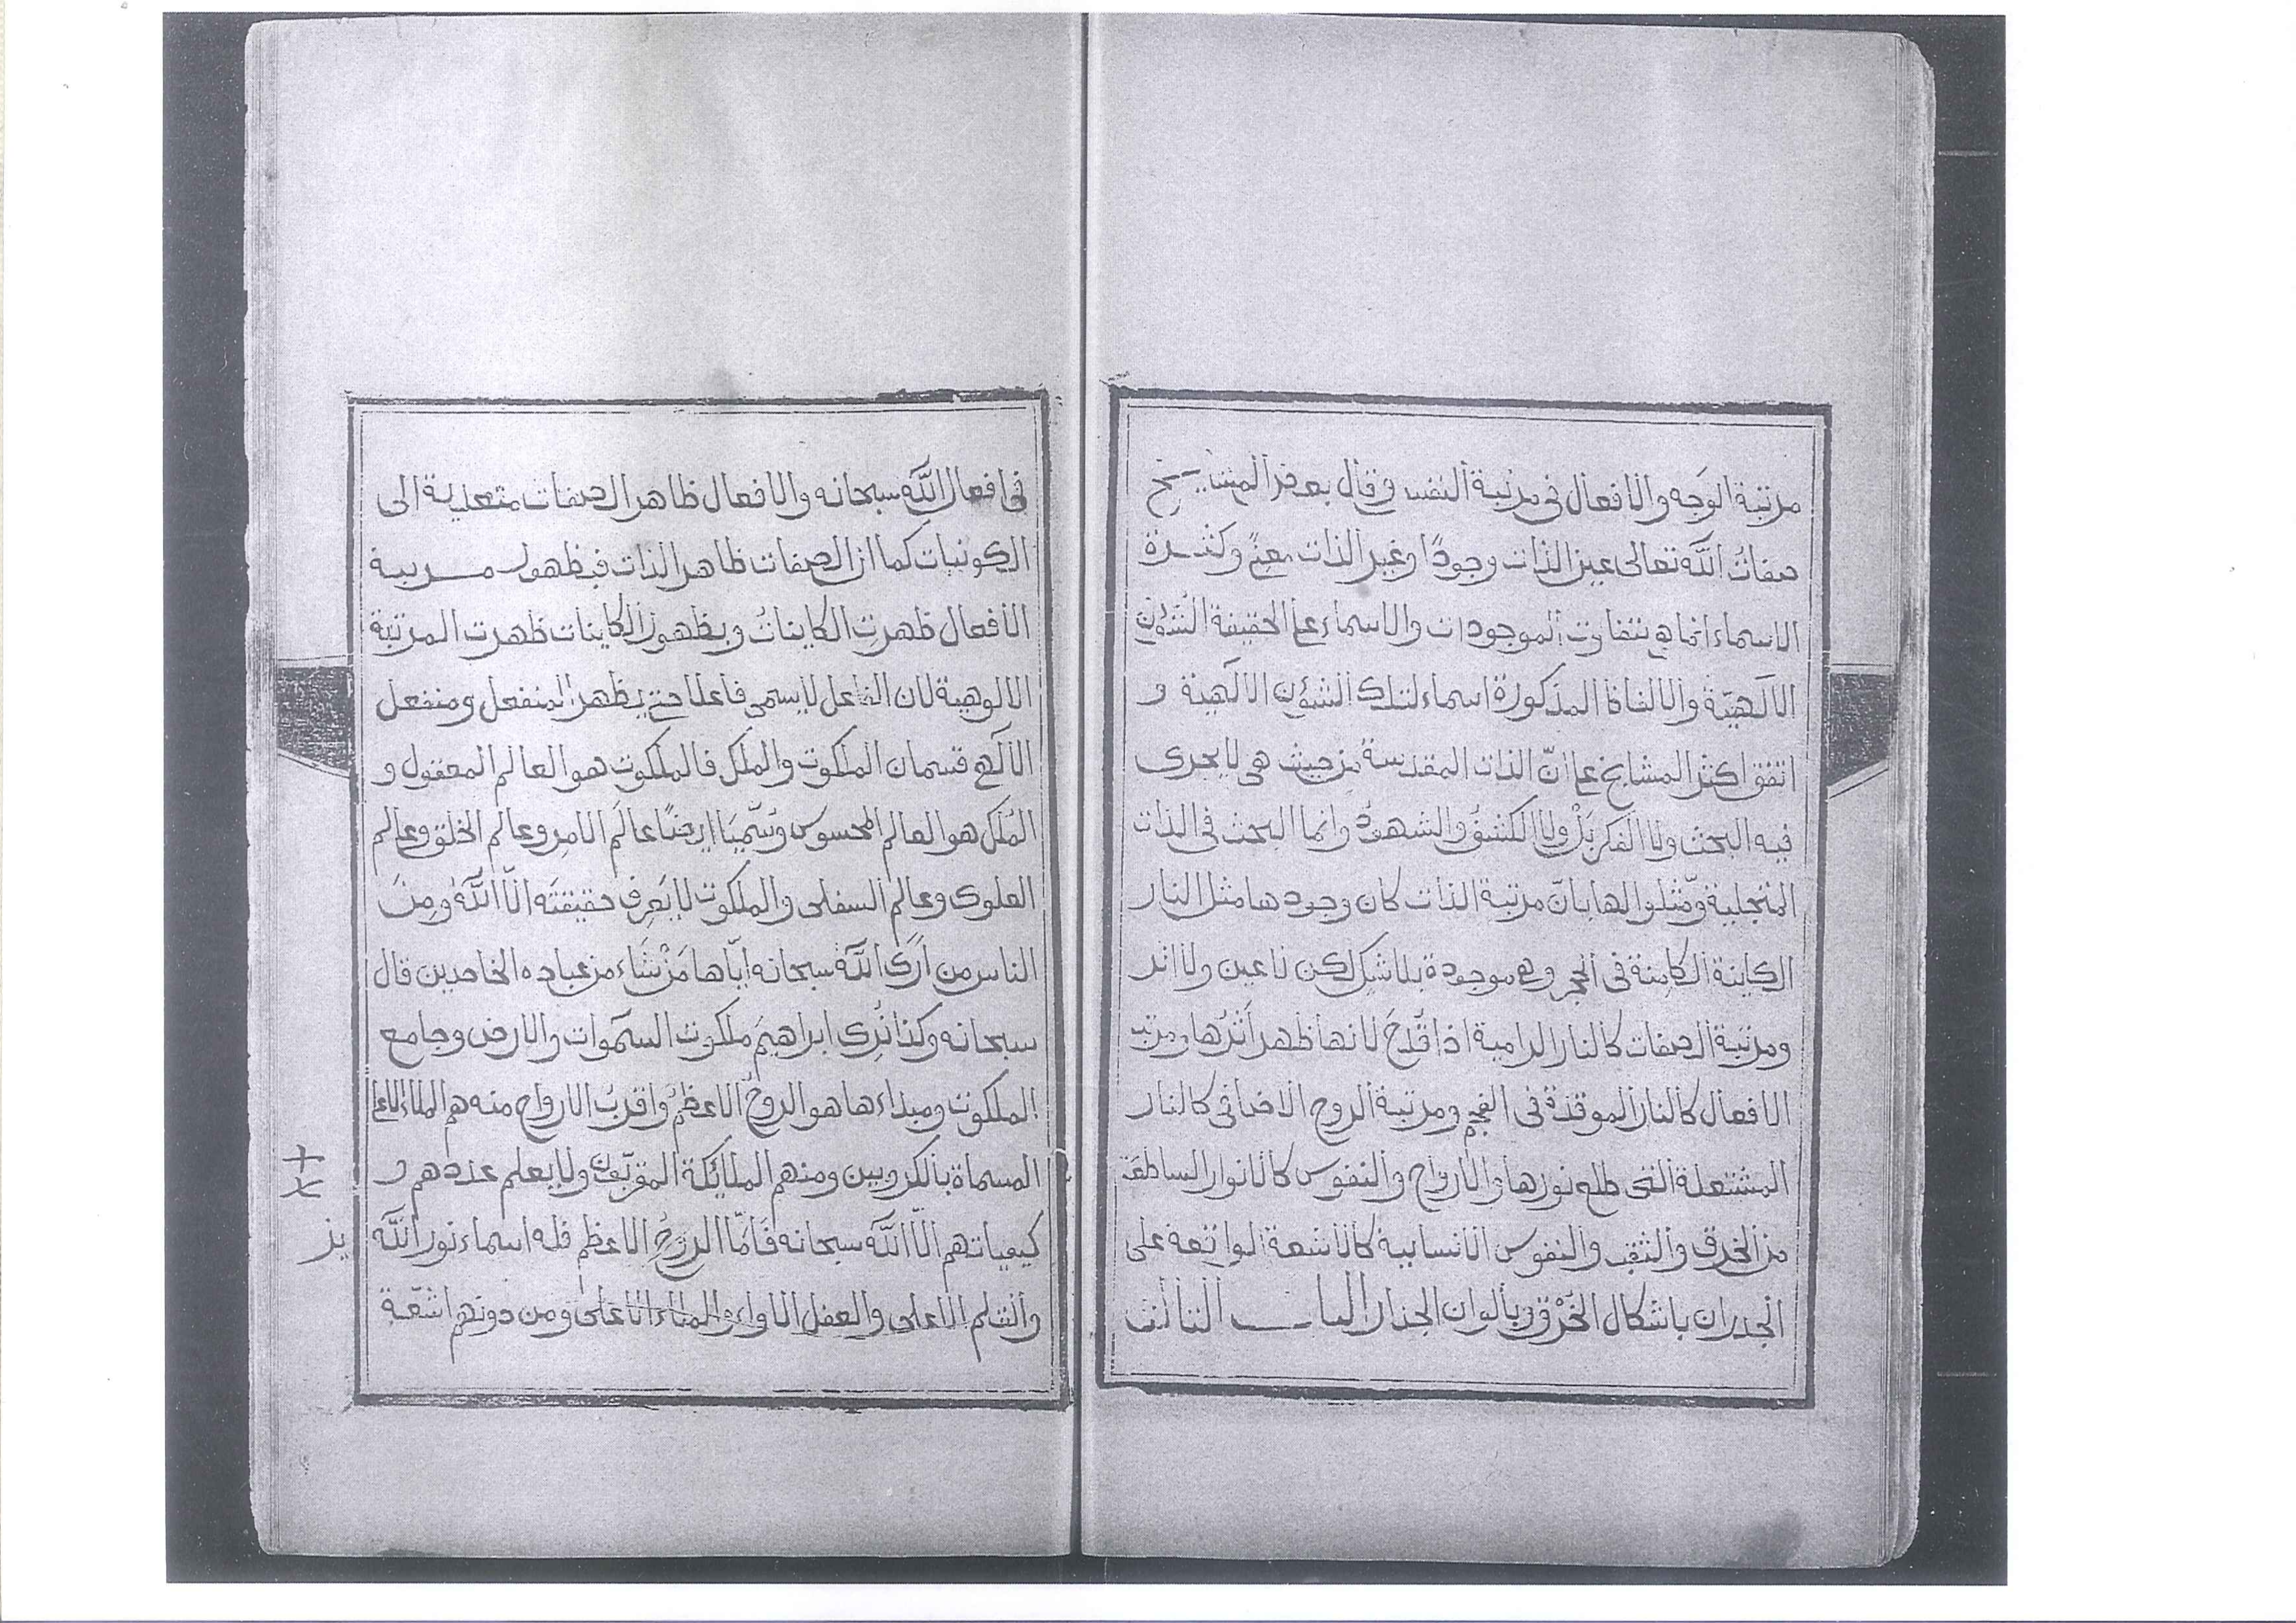 مرتبة الوَجه والافعال فى مرتبة النفس وقال بعض المشايخ
صفاتُ اللّه تعالى عين الذات وجودًا وغير الذات معنىً وكثرة
الاسماء انما هى بتفاوت الموجودات والاسماء على الحقيقة الشئون
الالٓهيّة والالفاظ المذكورة اسماء لتلك الشئون الالٓهية و
اتفق اكثر المشايخ على انّ الذات المقدسة من حيث هى لا يجرى
فيه البحث ولا الفكر بَلْ ولا الكشفُ والشهودُ وانما البحث فى الذات
المتجلية ومّثلوا لها بانّ مرتبة الذات كان وجودها مثل النار
الكاينة الكامنة فى الحجر وهى موجودة بلا شك لكن لا عين ولا اثر
ومرتبة الصفات كالنار الرامية اذا قُدِحَ لانها ظهر اَثَرُها ومرتبة
الافعال كالنار الموقدة فى الفحم ومرتبة الروح الاضافى كالنار
المشتعلة التى طلع نورها والارواح والنفوس كالانوار الساطعَة
من الخرق والثقب والنفوس الانسانية كالاشعة الواقعة على
الجدران باشكال الخَرْق وبالوان الجدار الباب الثالث
فى افعال اللّٰه سبحانه والافعال ظاهر الصفات متعدية الى
الكونيات كما ان الصفات ظاهر الذات فبظهور مرتبة
الافعال ظهرت الكاينات وبظهور الكاينات ظهرت المرتبة
الالوهية لان الفاعل لا يسمى فاعلا حتى يظهر المنفعل ومنفعل
الالٓهى قسمان الملكوت والملك فالملكوت هو العالم المعقول و
المُلك هو العالم المحسوس وسُمّيَا ايضًا عالَم الامرِ وعالَم الخلق وعالم
العلوى وعالم السفلى والملكوت لا يَعرِف حقيقتَه الّا اللّٰهُ ومِنَ
الناس من اَرَى اللّٰه سبحانه ايّاها مَنْ شَاء من عباده الخاصين قال
سبحانه وكذا نُرِى ابراهيمَ ملكوت السمٓوات والارض وجامع
الملكوت ومبداءها هو الروحُ الاعظمُ واقربُ الارواح منه هم الملاء الاعلا
المسماة بالكروبين ومنهم الملائكة المقربّون ولا يعلم عددهم و
كيفياتهم الّا اللّٰه سبحانه فَامّا الروحُ الاعظم فله اسماء نور اللّٰه
والقلم الاعلى والعقل الاول والملاء الاعلى ومن دونهم اشعّة
يز